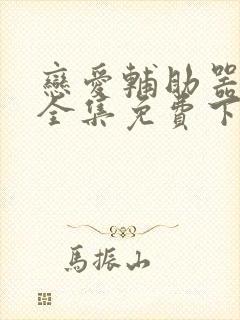 戀愛輔助器
全集免費下
馬振山